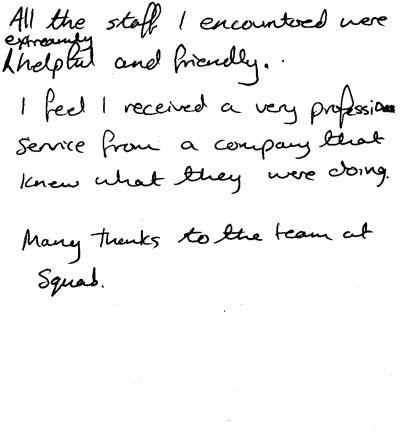 All the staff I encountered were
extreamly
helpful and friendly.
I feel I received a very profession
service from a company that
knew what they were doing.
Many thanks to the team at
Squab.